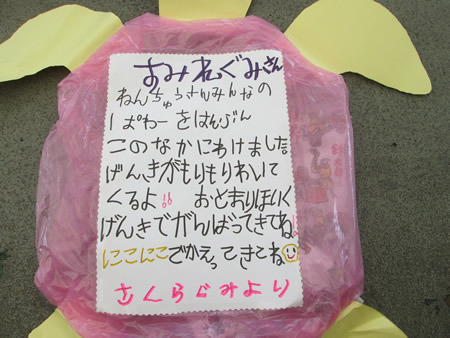 すみれぐみさん
ねんちゅうさんみんなの
ぱわーをはんぶん
このなかにわけました
げんきがもりもりわいて
くるよ!! おとまりほいく
げんきでがんばってきてね!
にこにこでかえってきてね
さくらぐみより